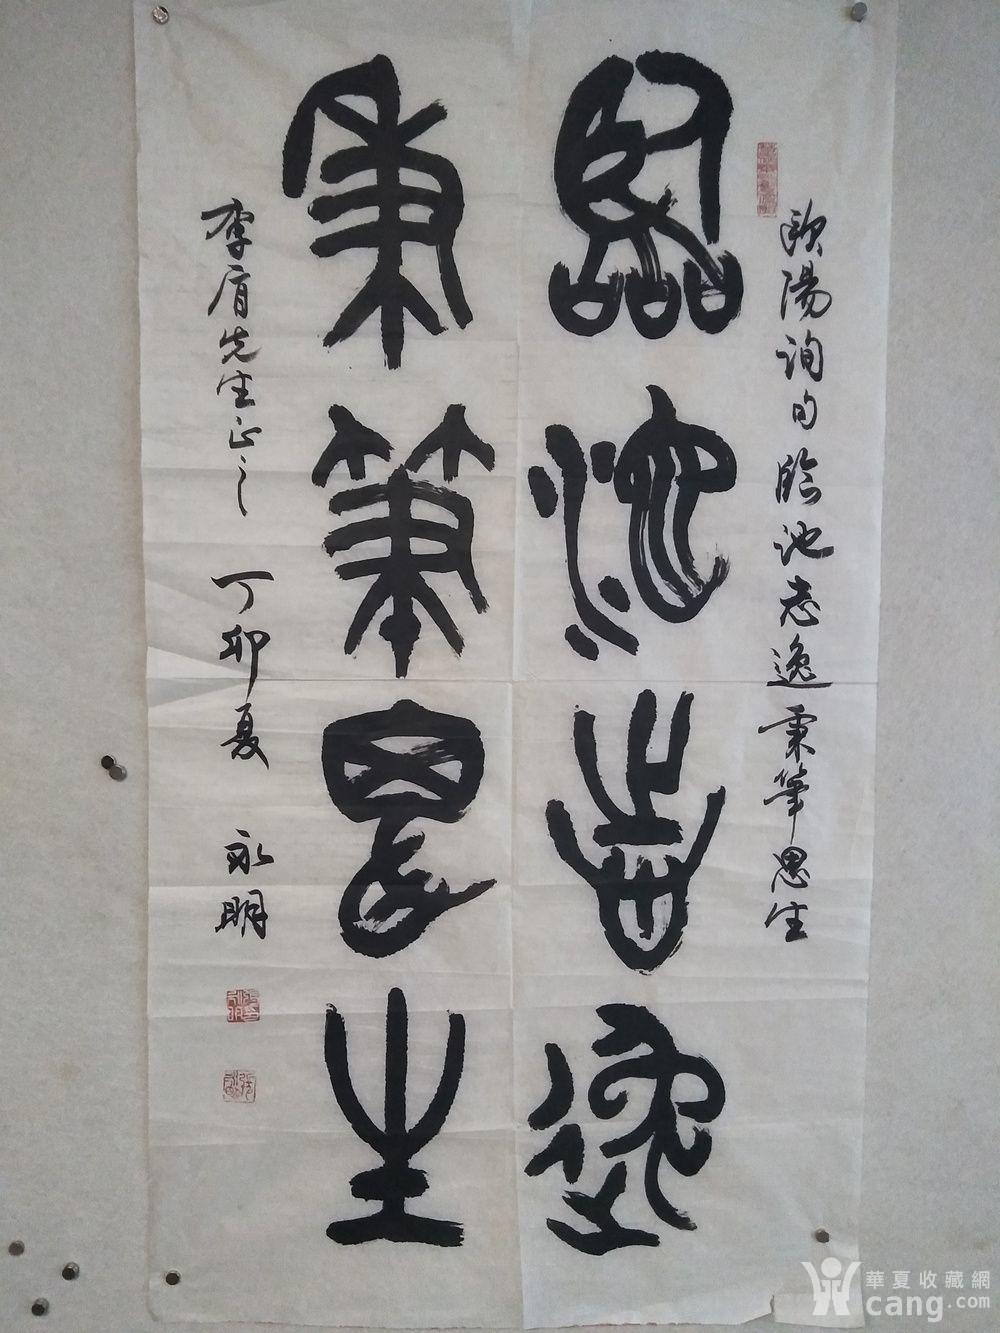 欧陽询句臨池志逸秉筆思生
臨池志逸
秉筆思生
李眉先生正之 丁卯夏 永明
華夏收藏網
cang.com